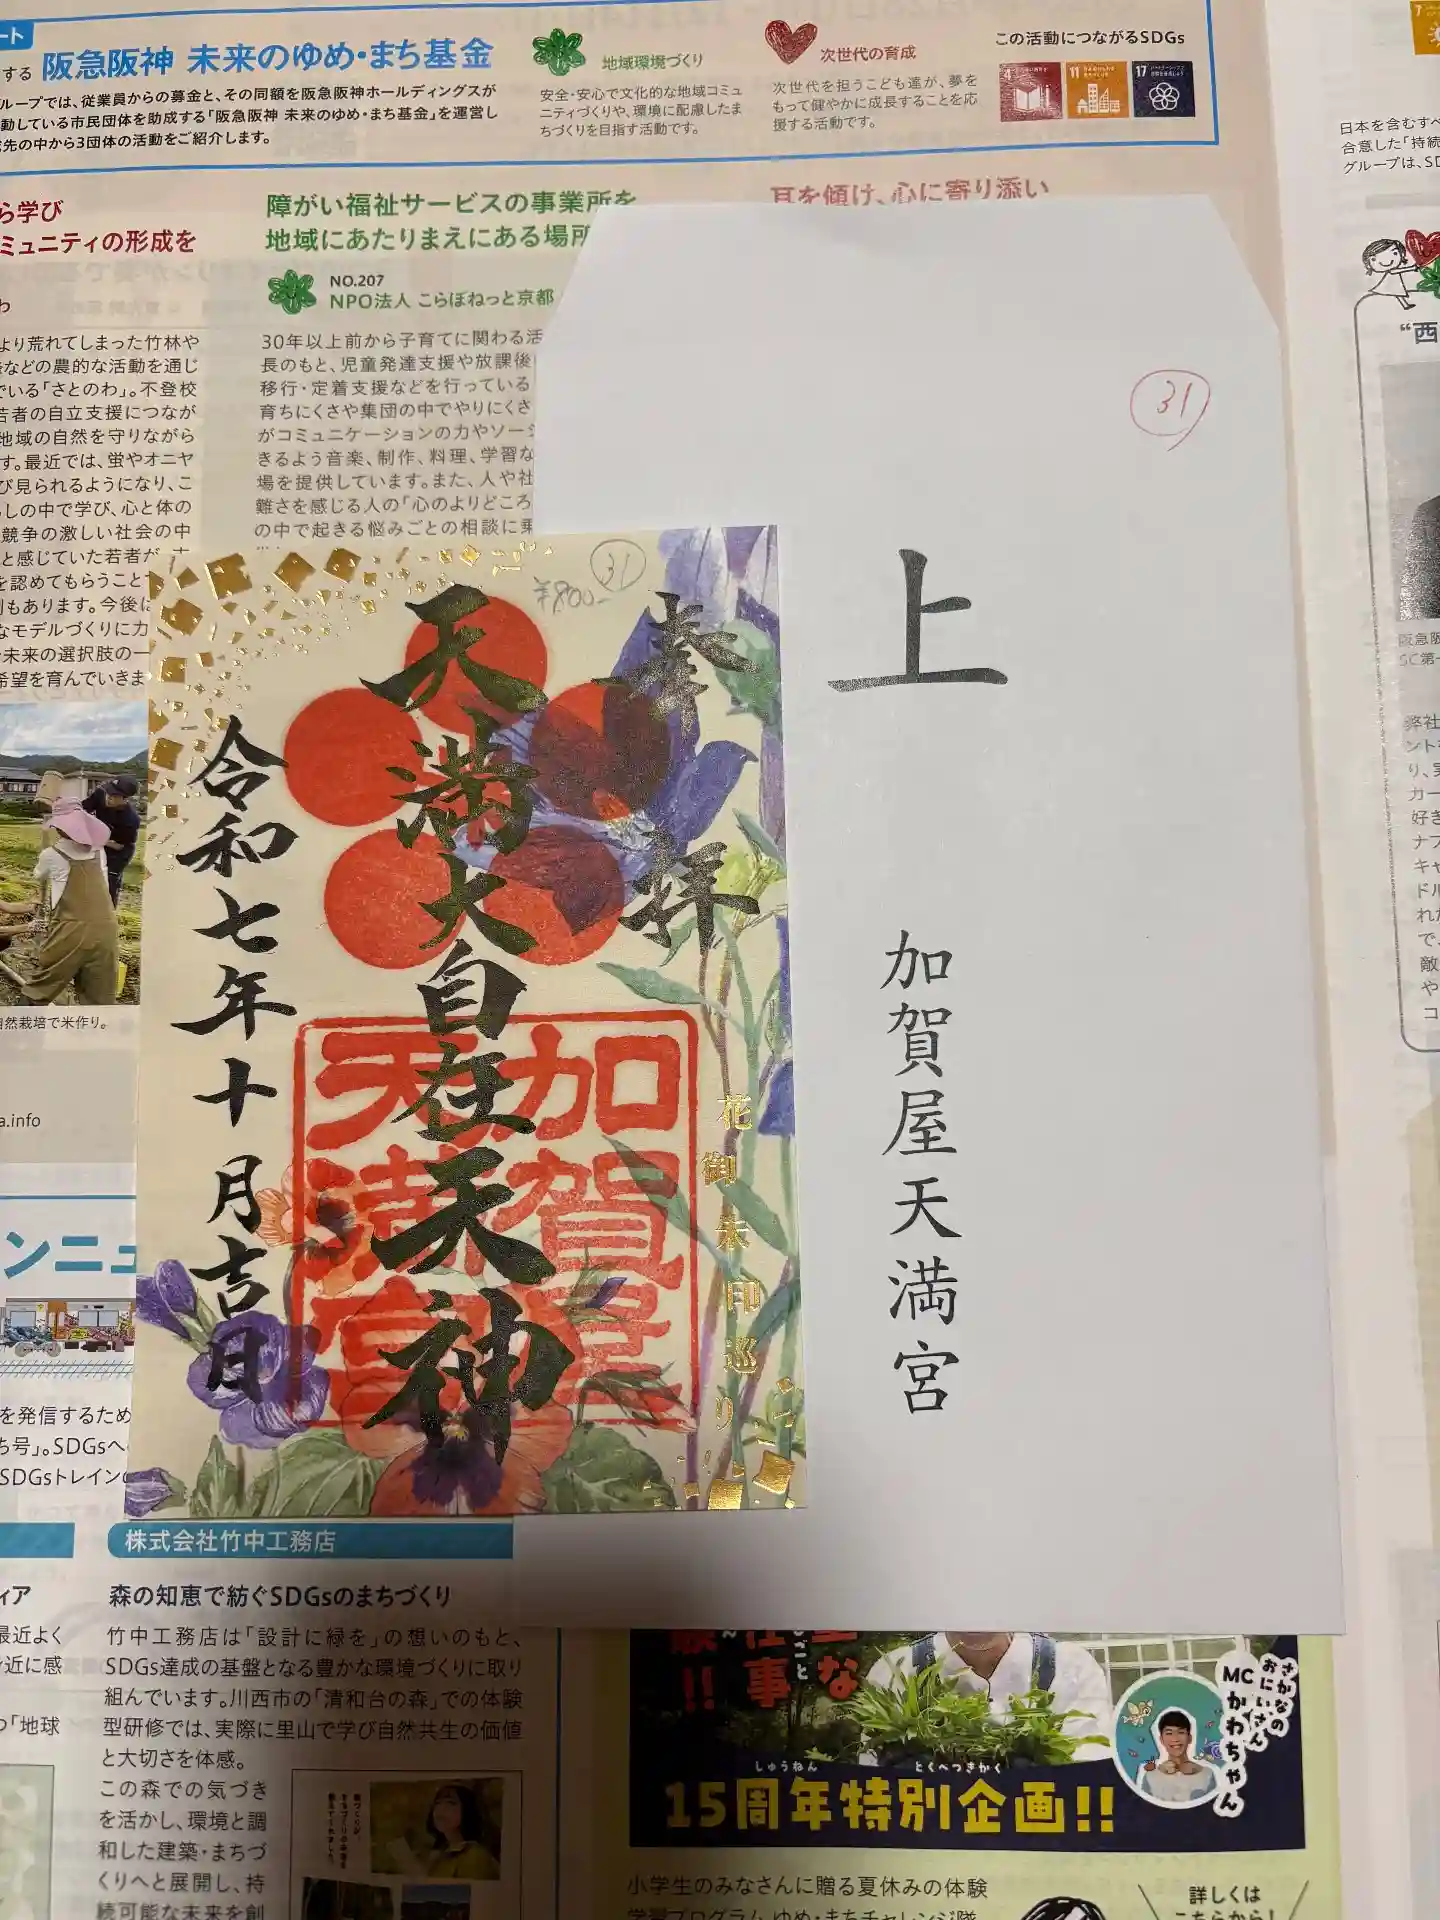 ート
する 阪急阪神 未来のゆめ・まち基金
ループでは、従業員からの募金と、その同額を阪急阪神ホールディングスが
動している市民団体を助成する「阪急阪神 未来のゆめ・まち基金」を運営し
先の中から3団体の活動をご紹介します。
地域環境づくり
安全・安心で文化的な地域コミュ
ニティづくりや、環境に配慮したま
ちづくりを目指す活動です。
次世代の育成
次世代を担うこども達が、夢を
もって健やかに成長することを応
援する活動です。
この活動につながるSDGs
4
11
17
日本を含むすべ
合意した「持続
グループは、SD
ら学び
ミュニティの形成を
わ
より荒れてしまった竹林や
などの農的な活動を通じ
でいる「さとのわ」。不登校
若者の自立支援につなが
地域の自然を守りながら
す。最近では、蛍やオニヤ
び見られるようになり、こ
らしの中で学び、心と体の
競争の激しい社会の中
と感じていた若者が
を認めてもらうこと
例もあります。今後は
なモデルづくりに力
未来の選択肢の一
希望を育んでいきま
自然栽培で米作り。
a.info
障がい福祉サービスの事業所を
地域にあたりまえにある場所
NO.207
NPO法人 こらぼねっと京都
30年以上前から子育てに関わる活
長のもと、児童発達支援や放課後
移行・定着支援などを行っている
育ちにくさや集団の中でやりにくさ
がコミュニケーションの力やソーシ
きるよう音楽、制作、料理、学習な
場を提供しています。また、人や社
難さを感じる人の「心のよりどころ
の中で起きる悩みごとの相談に乗
耳を傾け、心に寄り添い
31
上
加賀屋天満宮
¥800-
31
奉拝
天満大自在天神
令和七年十月吉日
加賀屋
天満宮
花御朱印巡り
“西
阪急阪
SC第一
弊社
ント
り、実
カー
好き
ナフ
キャ
ドル
れた
で、
敵
や
コ
ンニュ
を発信するため
ち号」。SDGsへ
SDGsトレイン
株式会社竹中工務店
森の知恵で紡ぐSDGsのまちづくり
竹中工務店は「設計に緑を」の想いのもと、
SDGs達成の基盤となる豊かな環境づくりに取り
組んでいます。川西市の「清和台の森」での体験
型研修では、実際に里山で学び自然共生の価値
と大切さを体感。
この森での気づき
を活かし、環境と調
和した建築・まちづ
くりへと展開し、持
続可能な未来を創
ィア
最近よく
近に感
「地球
仕事
しごと
な
!!
さかなの
おにいさん
MC かわちゃん
しゅうねん とくべつきかく
15周年特別企画!!
小学生のみなさんに贈る夏休みの体験
学習プログラム ゆめ・まちチャレンジ隊
詳しくは
こちらから!